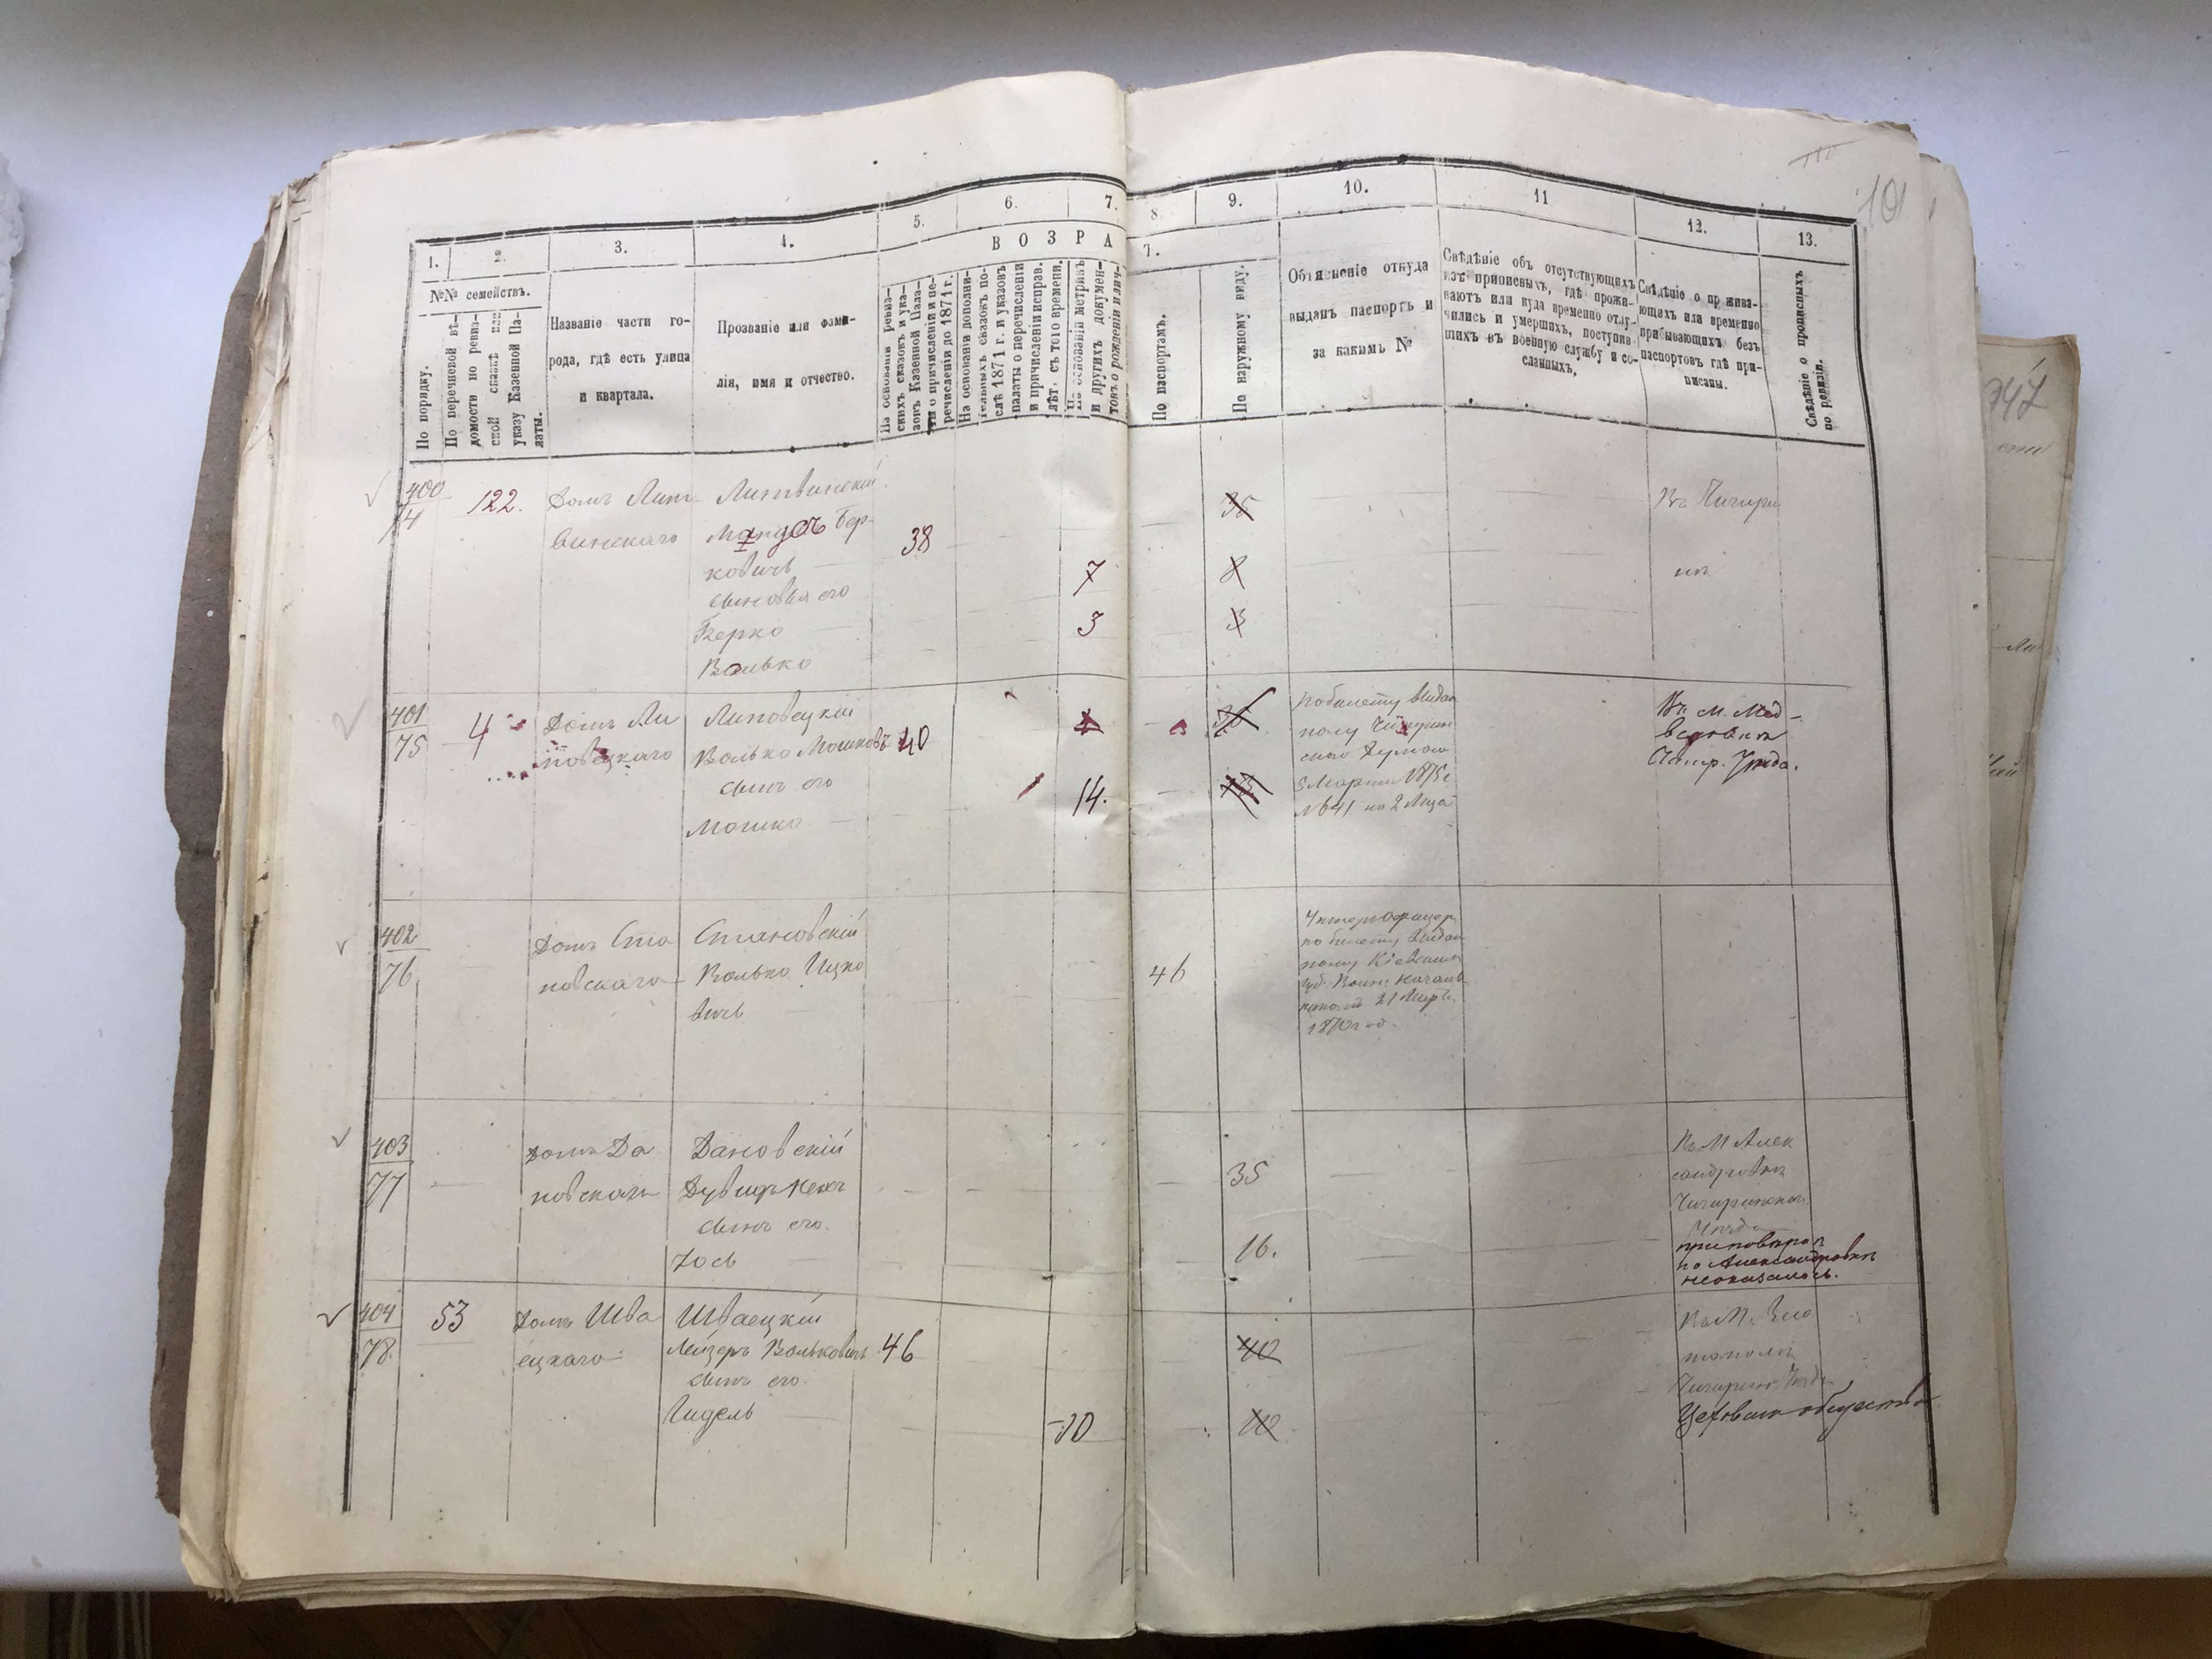 101
1.
2.
3.
4.
5.
6.
7.
8.
9.
10.
11
12.
13.
№№ семействъ.
По порядку.
По перечневой вѣ-
домости по ревиз-
ской сказкѣ или
указу Казенной Па-
латы.
Названіе части го-
рода, гдѣ есть улица
и квартала.
Прозваніе или фами-
лія, имя и отчество.
В О З Р А
Т.
На основаніи ревиз-
скихъ сказокъ и ука-
зовъ Казенной Пала-
ты о причисленіи и пе-
речисленіи до 1871 г.
На основаніи дополни-
тельныхъ сказокъ по-
слѣ 1871 г. и указовъ
палаты о перечисленіи
и причисленіи исправ.
лѣтъ съ того времени.
По основаніи метрикъ
и другихъ докумен-
товъ о рожденіи и лич-
По паспортамъ.
По наружному виду.
Объясненіе откуда
выданъ паспортъ и
за какимъ №
Свѣдѣніе объ отсутствующихъ
изъ приписныхъ, гдѣ прожи-
ваютъ или куда временно отлу-
чились и умершихъ, поступив-
шихъ въ военную службу и со-
сланныхъ,
Свѣдѣніе о прожива-
ющихъ или временно
прибывающихъ безъ
паспортовъ гдѣ при-
писаны.
Свѣдѣніе о прописныхъ
по ревизіи.
400
74
122.
Домъ Лит
винскаго
Литвинскій
Бер-
ковичъ
сыновья его
Берко
Волько
38
7
3
35
8
3
Въ Чигири
нѣ
401
75
4
Домъ Ли
повецкаго
Липовецкій
Волько Мошковъ
сынъ его
Мошко
40
14.
По билету выдан
ному
Думою
5 Марта 1875 г.
№641 на 2 М-ца
Въ м. Мед-
ведовкѣ
Чигир. Уѣзда.
402
76
Домъ Ста
новскаго
Становскій
Волько Ицко
вичъ
46
Унтерофицер
по билету выдан
ному Кіевскимъ
губ. Воин. началь
21 Март.
403
77
Домъ Да
новскаго
Дановскій
сынъ его
Іось
35
16.
Въ М Алек
сандровкѣ
Чигиринскаго
Уѣзда
при повѣркѣ
по Александровкѣ
неоказалось.
404
78.
53
Домъ Шва
ецкаго
Шваецкій
Лейзеръ Вольковичъ
сынъ его
46
10
40
10
Въ М. Зло
тополѣ
Чигирин. Уѣзда